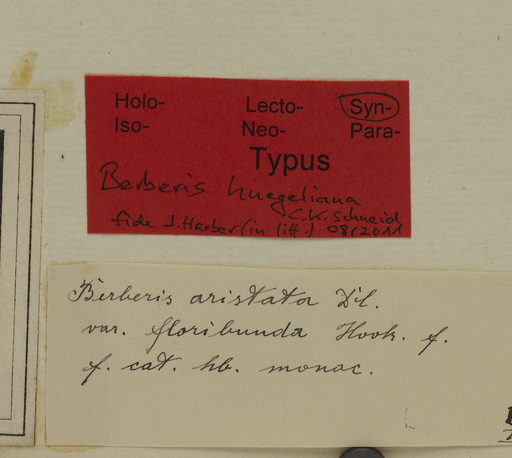 Holo- Lecto- Syn-
Iso- Neo- Para-
Typus
Berberis huegeliana
C.K. Schneid
fide J. Harber (in litt.) 08/2011
Berberis aristata D'C.
var. floribunda Hook. f.
f. cat. hb. monac.